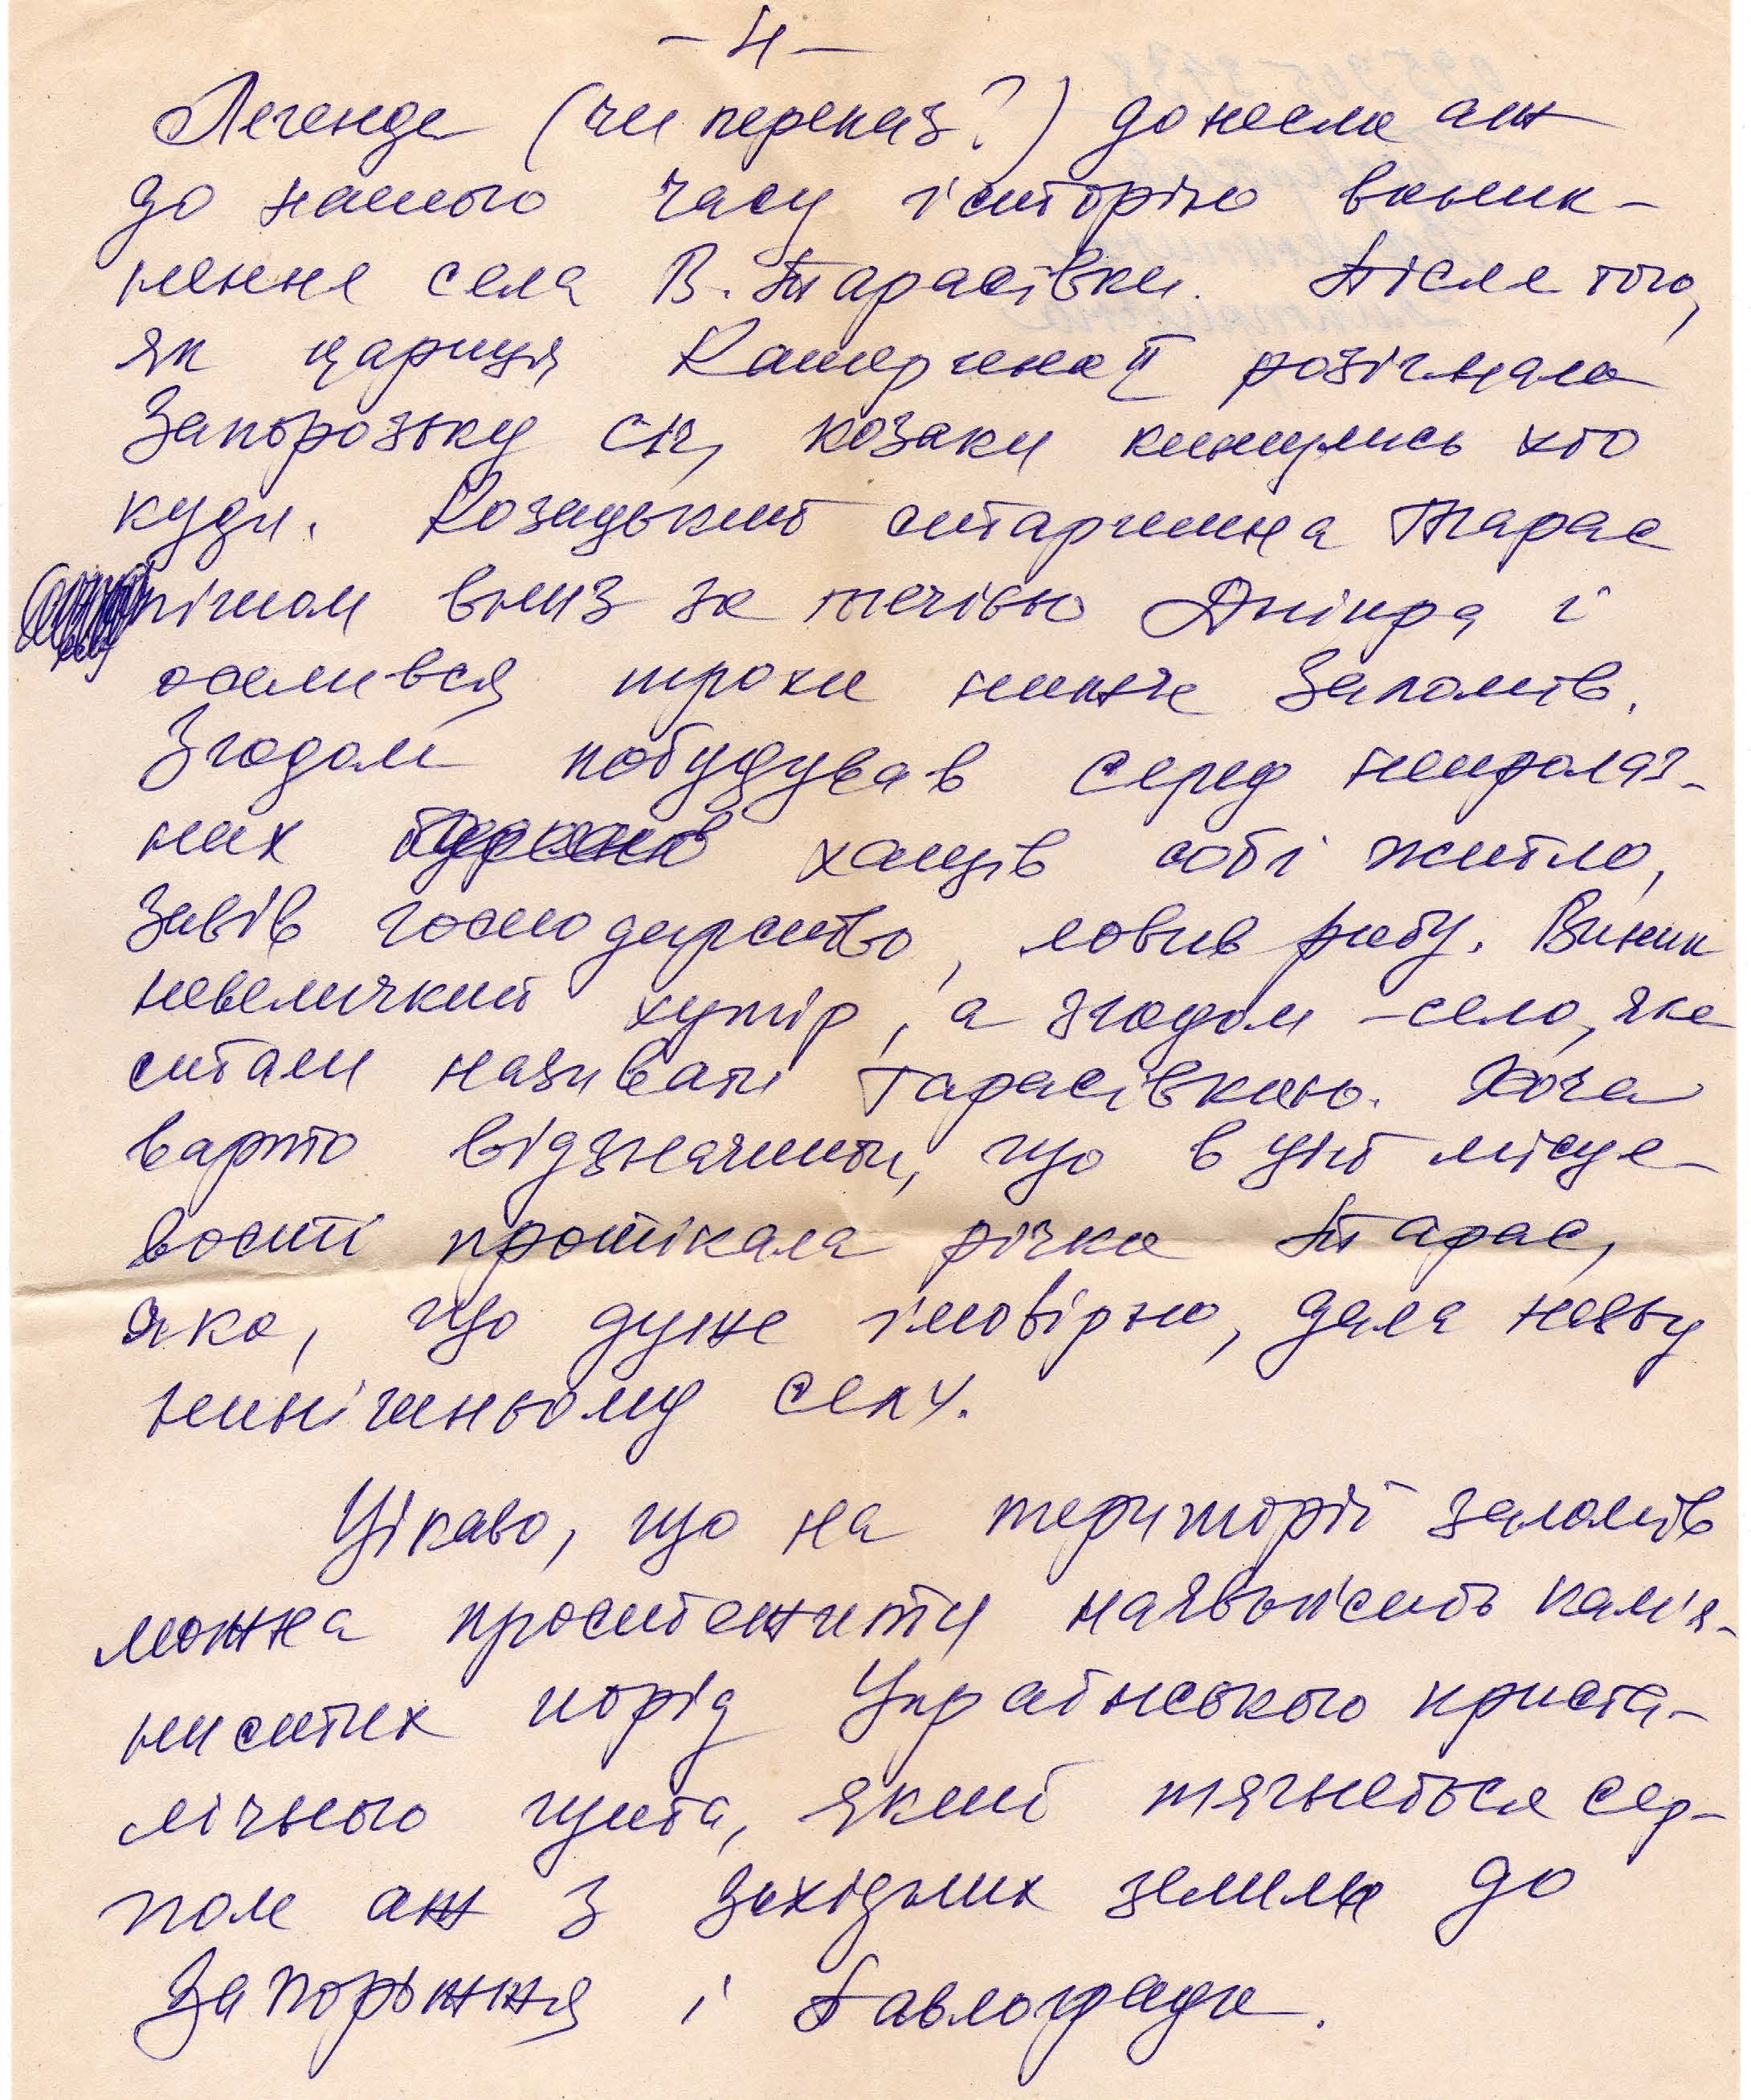 - 4 -
Легенда (чи переказ?) донесла аж
до нашого часу історію виник-
нення села В. Тарасівки. Після того,
як цариця Катерина II розігнала
Запорозьку Січ, козаки кинулись хто
куди. Козацький старшина Тарас
пішов вниз за течією Дніпра і
оселився трохи нижче Заломів.
Згодом побудував серед непролаз-
них хащів собі житло,
завів господарство, ловив рибу. Виник
невеличкий хутір, а згодом - село, яке
стали називати Тарасівкою. Хоча
варто відзначити, що в цій місце-
вості протікала річка Тарас,
яка, що дуже імовірно, дала назву
нинішньому селу.
Цікаво, що на території заломів
можна простежити наявність кам'я-
нистих порід Українського криста-
лічного щита, який тягнеться сер-
пом аж з західних земель до
Запоріжжя і Павлограда.